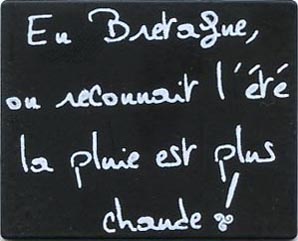 En Bretagne,
on reconnait l'été
la pluie est plus
chaude !